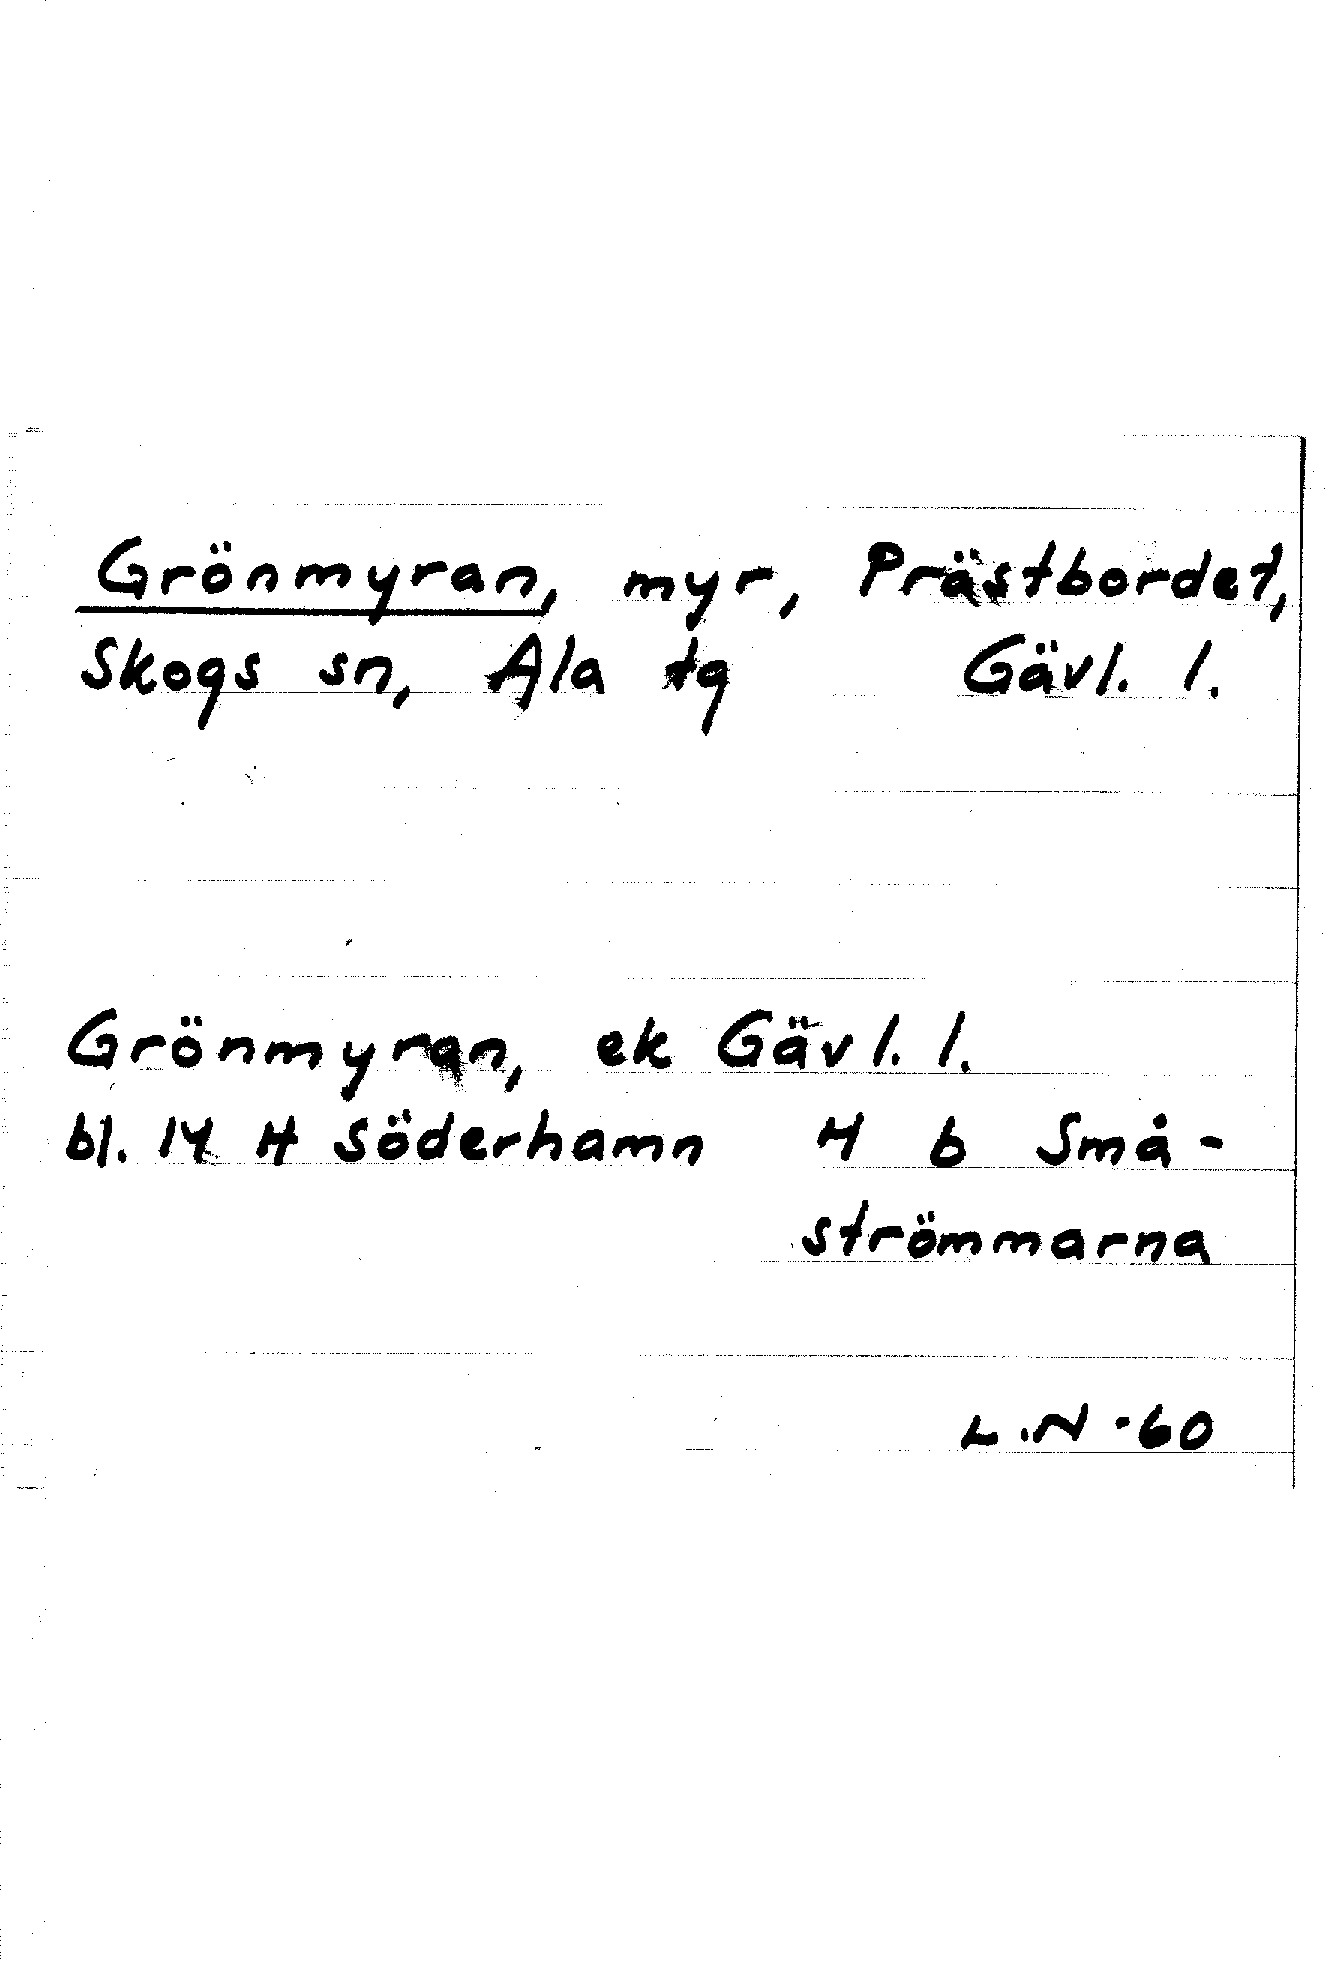 Grönmyran, myr, Prästbordet,
Skogs sn, Ala tg Gävl. l.
Grönmyran, ek Gävl. l.
bl. 14 H Söderhamn 4 b Små-
strömmarna
L.N -60